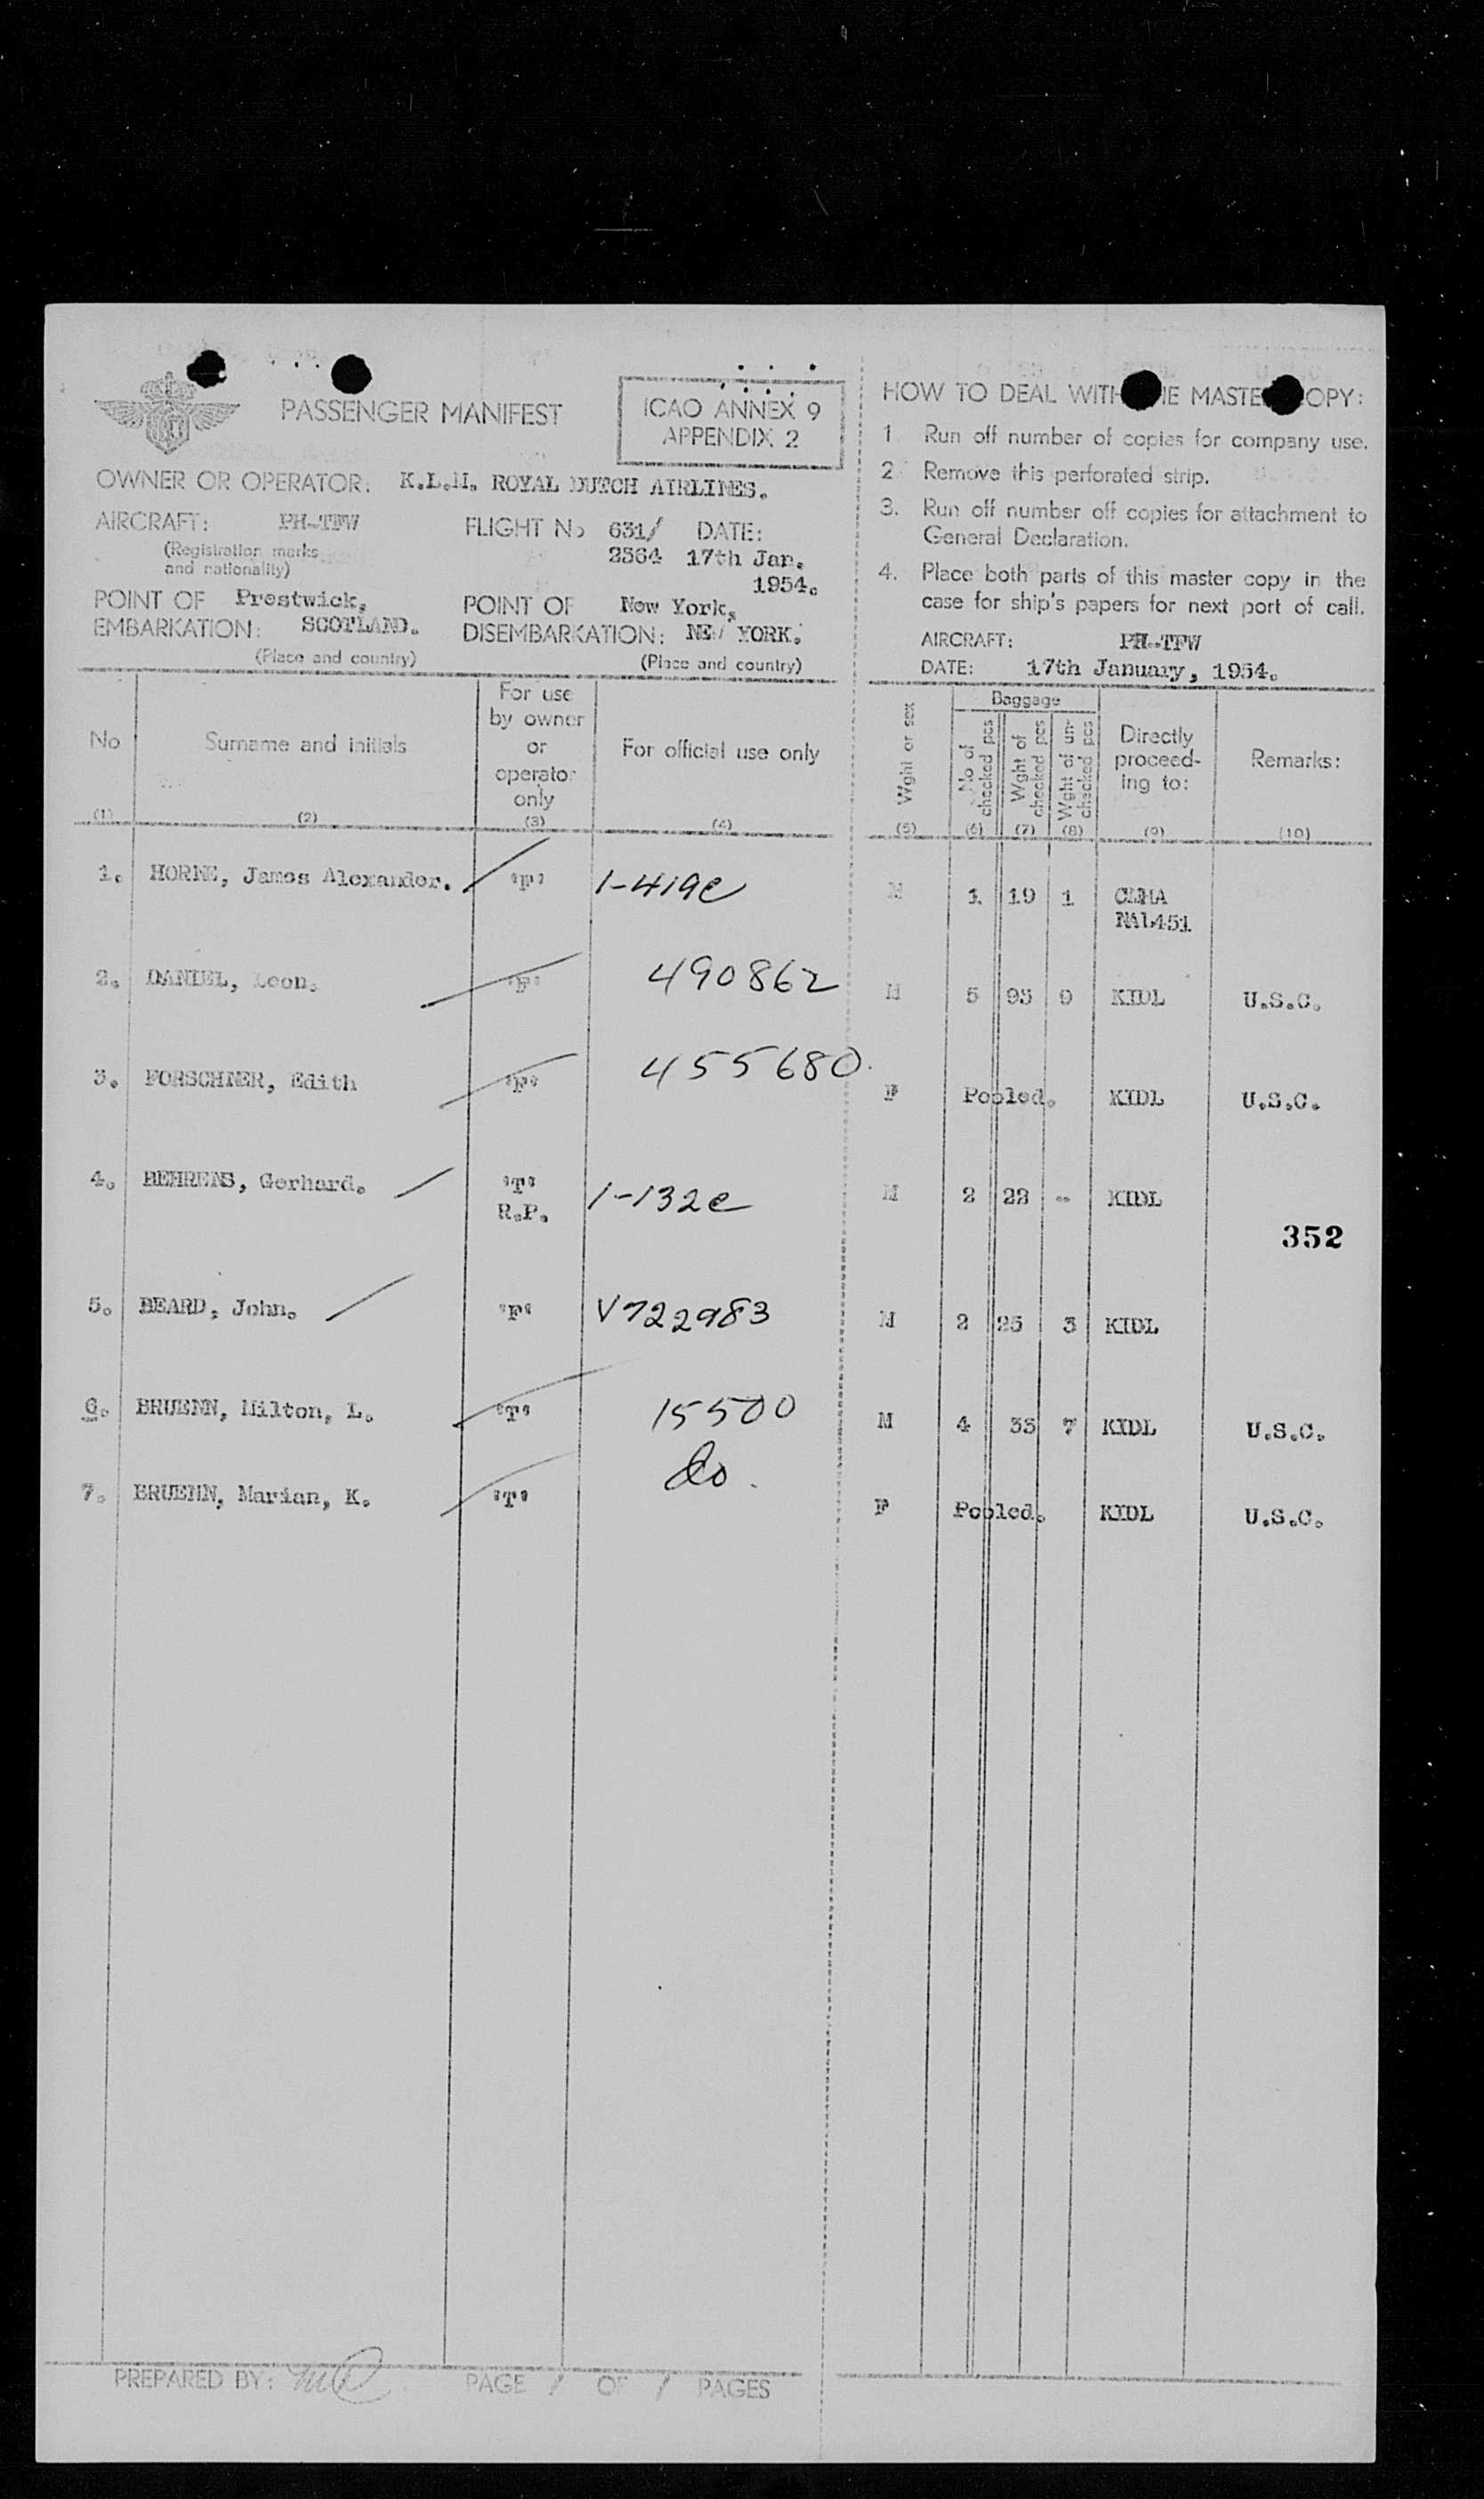 PASSENGER MANIFEST
ICAO ANNEX 9
APPENDIX 2
OWNER OR OPERATOR: K.L.M. ROYAL DUTCH AIRLINES.
AIRCRAFT: PH-TFW
(Registration marks
and nationality)
FLIGHT No 631/ DATE:
2564 17th Jan.
1954.
POINT OF Prestwick,
EMBARKATION: SCOTLAND.
(Place and country)
POINT OF New York,
DISEMBARKATION: NEW YORK.
(Place and country)
HOW TO DEAL WITH THE MASTER COPY:
1. Run off number of copies for company use.
2. Remove this perforated strip.
3. Run off number off copies for attachment to
General Declaration.
4. Place both parts of this master copy in the
case for ship's papers for next port of call.
AIRCRAFT: PH-TFW
DATE: 17th January, 1954.
No (1)
Surname and initials (2)
For use
by owner
or
operator
only
(3)
For official use only (4)
Wght or sex (5)
Baggage
No of
checked pcs (6)
Wght of
checked pcs (7)
Wght of un-
checked pcs (8)
Directly
proceed-
ing to:
(9)
Remarks:
(10)
1. HORNE, James Alexander. 'F' 1-419e M 1 19 1 CLHA
NAL451
2. DANIEL, Leon. 'F' 490862 M 5 95 9 KIDL U.S.C.
3. FORSCHNER, Edith 'F' 455680 F Pooled. KIDL U.S.C.
4. BEHRENS, Gerhard. 'T' 1-132e M 2 22 - KIDL
R.P.
352
5. BEARD, John. 'F' V722983 M 2 25 3 KIDL
6. BRUENN, Milton, L. 'T' 15500 M 4 35 7 KIDL U.S.C.
7. BRUENN, Marian, K. 'T' do. F Pooled. KIDL U.S.C.
PREPARED BY: PAGE 1 OF 1 PAGES